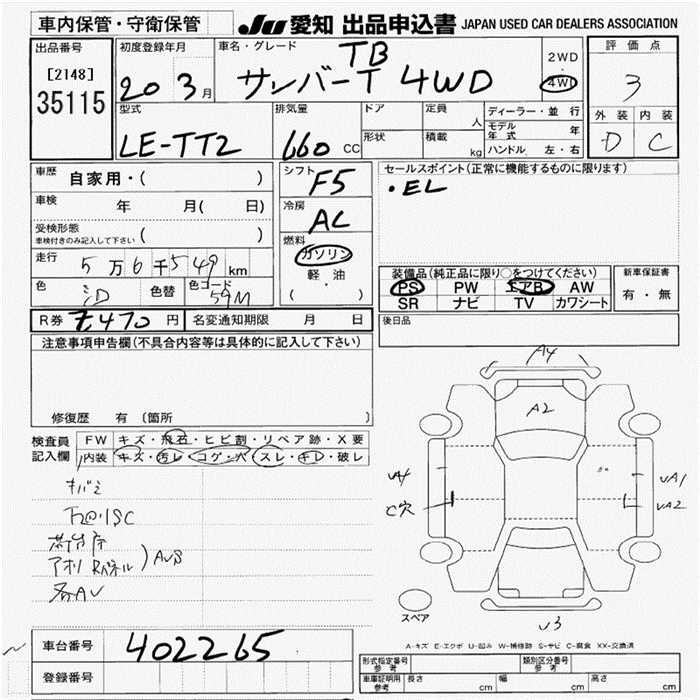 車内保管・守衛保管 JU 愛知 出品申込書 JAPAN USED CAR DEALERS ASSOCIATION
出品番号 初度登録年月 車名・グレード 2WD・4WD 評価点
[2148]
35115
20 3月
TB
サンバーT 4WD
3
外装 内装
D C
型式 排気量 ドア 定員 人 ディーラー・並行
LE-TT2 660 CC 形状 積載 kg モデル年式 年
ハンドル 左・右
車歴 自家用・( ) シフト F5 セールスポイント(正常に機能するものに限ります)
・EL
車検 年 月( 日) 冷房 AC
受検形態 ( )
車検付きのみ記入して下さい
燃料 ガソリン
軽・油
( )
走行 5万6千549km
色 色替 色コード 59M
装備品(純正品に限り○をつけてください) 新車保証書
PS PW エアB AW 有・無
SR ナビ TV カワシート
R券 7,470円 名変通知期限 月 日 後日品
注意事項申告欄(不具合内容等は具体的に記入して下さい)
修復歴 有 (箇所
検査員記入欄 FW キズ・飛石・ヒビ割・リペア跡・X要
内装 キズ・汚レ・コゲ・穴・スレ・キレ・破レ
キバミ
下回りSC
荷台床
アオリ Rパネル AUB
各AU
A4
A2
UA1
UA2
C穴
U3
スペア
A-キズ E-エクボ U-凹み W-補修跡 S-サビ C-腐食 XX-交換済
車台番号 402265
登録番号
形式指定番号 参考 類別区分番号 参考
車庫証明用 参考 長さ cm 幅 cm 高さ cm